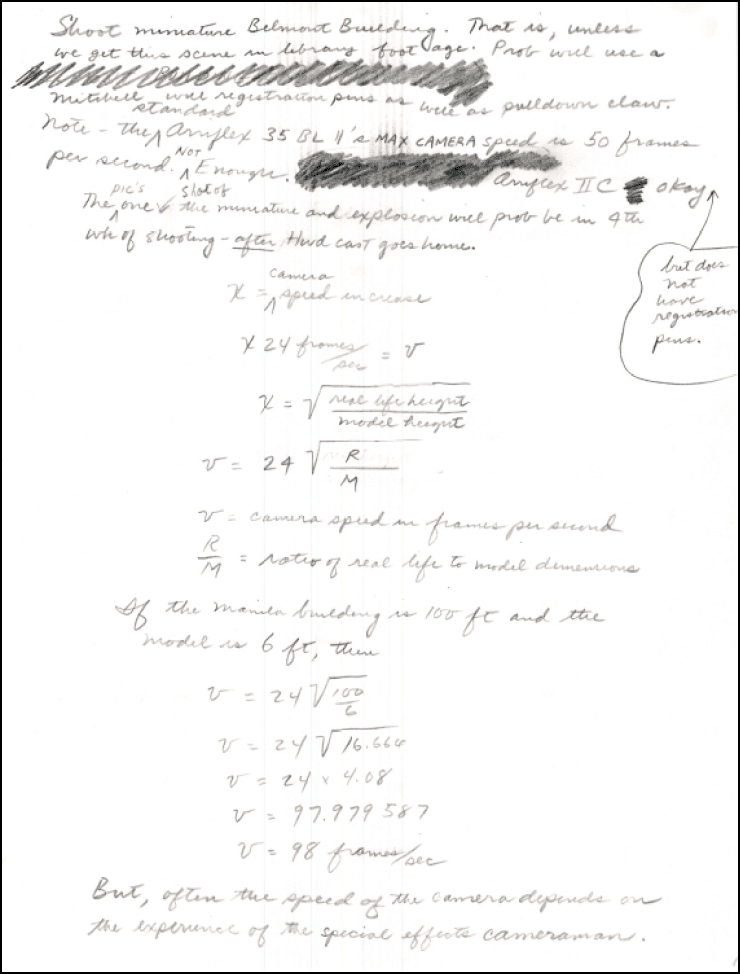 Shoot miniature Belmont Building. That is, unless
we get this scene in library footage. Prob will use a
Mitchell with registration pins as well as pulldown claw.
standard
Note - the Arriflex 35 BL II's MAX CAMERA speed is 50 frames
per second. Not Enough. Arriflex II C okay
pic's shot of
The one the miniature and explosion will prob be in 4th
wk of shooting - after Hwd cast goes home.
but does
not
have
registration
pins.
camera
X = speed increase
X 24 frames/sec = v
X = √ real life height
model height
v = 24 √ R
M
v = camera speed in frames per second
R
M = ratio of real life to model dimensions
If the Manila building is 100 ft and the
model is 6 ft, then
v = 24 √ 100
6
v = 24 √ 16.666
v = 24 x 4.08
v = 97.979587
v = 98 frames/sec
But, often the speed of the camera depends on
the experience of the special effects cameraman.